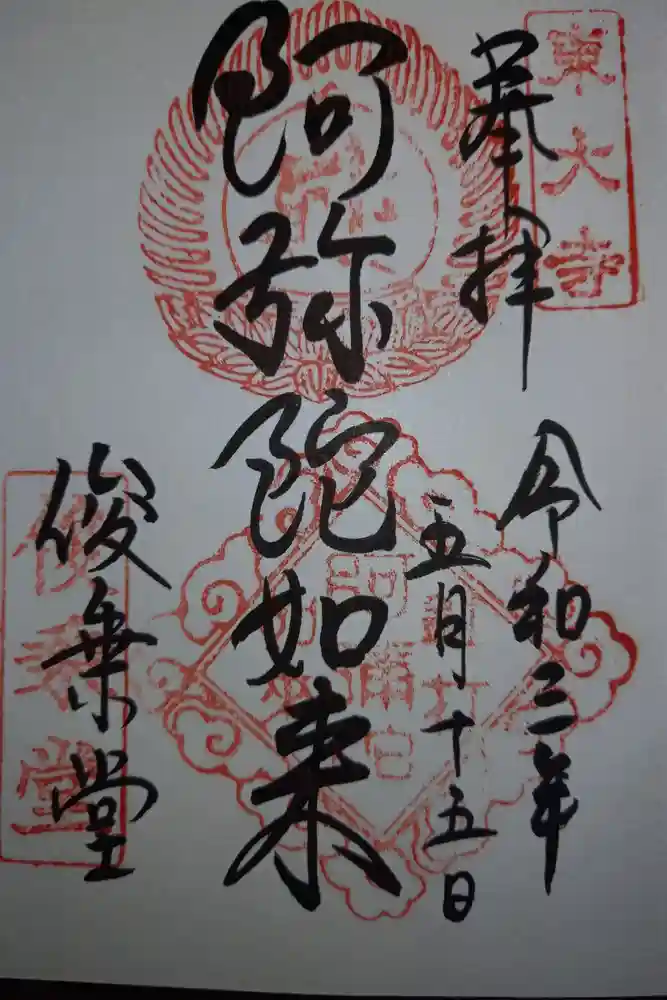 東大寺
奉拝
令和三年
五月十五日
阿弥陀如来
俊乗堂
俊乗堂